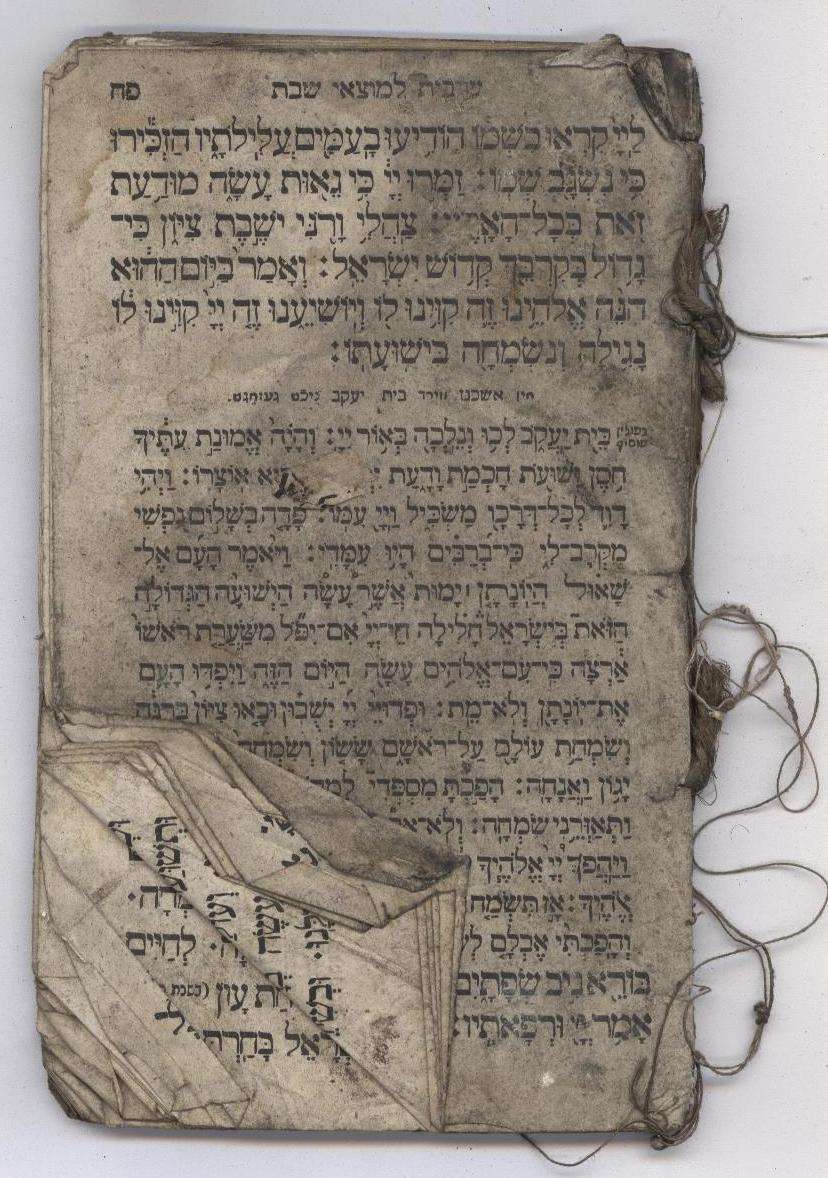 ערבית למוצאי שבת פח
לַיְיָ קִרְאוּ בִשְׁמוֹ הוֹדִיעוּ בָעַמִּים עֲלִילֹתָיו הַזְכִּירוּ
כִּי נִשְׂגָּב שְׁמוֹ: זַמְּרוּ יְיָ כִּי גֵאוּת עָשָׂה מוּדַעַת
זֹאת בְּכָל־הָאָרֶץ: צַהֲלִי וָרֹנִּי יֹשֶׁבֶת צִיּוֹן כִּי־
גָדוֹל בְּקִרְבֵּךְ קְדוֹשׁ יִשְׂרָאֵל: וְאָמַר בַּיּוֹם הַהוּא
הִנֵּה אֱלֹהֵינוּ זֶה קִוִּינוּ לוֹ וְיוֹשִׁיעֵנוּ זֶה יְיָ קִוִּינוּ לוֹ
נָגִילָה וְנִשְׂמְחָה בִּישׁוּעָתוֹ:
אשכנז ווירד בית יעקב
בֵּית יַעֲקֹב לְכוּ וְנֵלְכָה בְּאוֹר יְיָ: וְהָיָה אֱמוּנַת עִתֶּיךָ
חֹסֶן יְשׁוּעֹת חָכְמַת וָדָעַת הִיא אוֹצָרוֹ: וַיְהִי
דָוִד לְכָל־דְּרָכָו מַשְׂכִּיל וַיְיָ עִמּוֹ: פָּדָה בְשָׁלוֹם נַפְשִׁי
מִקְּרָב־לִי כִּי־בְרַבִּים הָיוּ עִמָּדִי: וַיֹּאמֶר הָעָם אֶל־
שָׁאוּל הֲיוֹנָתָן יָמוּת אֲשֶׁר עָשָׂה הַיְשׁוּעָה הַגְּדוֹלָה
הַזֹּאת בְּיִשְׂרָאֵל חָלִילָה חַי־יְיָ אִם־יִפֹּל מִשַּׂעֲרַת רֹאשׁוֹ
אַרְצָה כִּי־עִם־אֱלֹהִים עָשָׂה הַיּוֹם הַזֶּה וַיִּפְדּוּ הָעָם
אֶת־יוֹנָתָן וְלֹא־מֵת: וּפְדוּיֵי יְיָ יְשֻׁבוּן וּבָאוּ צִיּוֹן בְּרִנָּה
וְשִׂמְחַת עוֹלָם עַל־רֹאשָׁם שָׂשׂוֹן וְשִׂמְחָה
יָגוֹן וַאֲנָחָה: הָפַכְתָּ מִסְפְּדִי לְמָחוֹל
וַתְּאַזְּרֵנִי שִׂמְחָה: וְלֹא־אָבָה
וַיַּהֲפֹךְ יְיָ אֱלֹהֶיךָ
אֱלֹהֶיךָ: אָז תִּשְׂמַח
וְהָפַכְתִּי אֶבְלָם לְשָׂשׂוֹן
בּוֹרֵא נִיב שְׂפָתָיִם
אָמַר יְיָ וּרְפָאתִיו:
לְחַיִּים
עָוֹן (בשבת